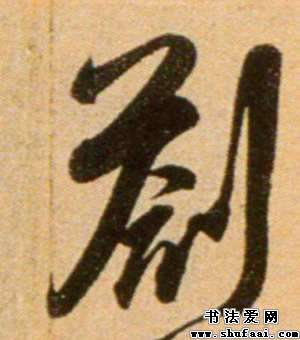 劄
书法爱网
www.shufaai.com